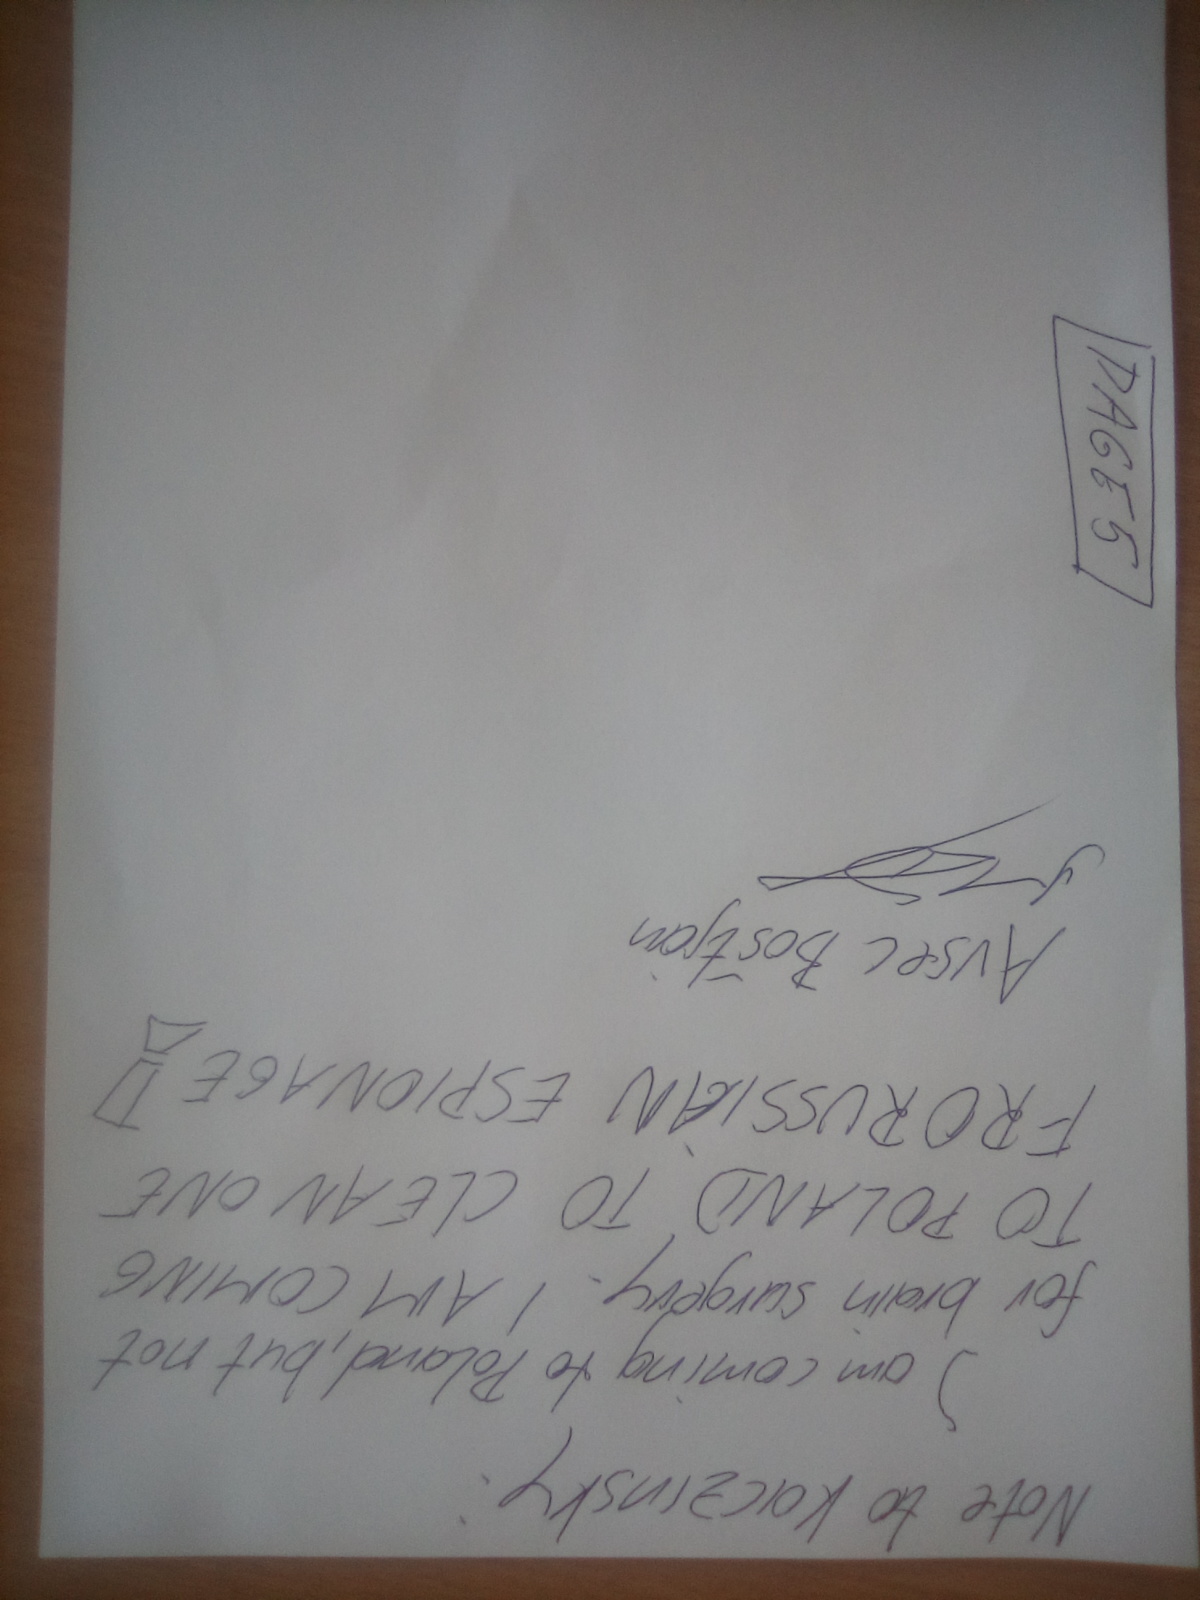 Note to Kaczinsky:
I am coming to Poland, but not
for brain surgery. I AM COMING
TO POLAND TO CLEAN ONE
FRORUSSIAN ESPIONAGE!
Avsec Boštjan
PAGE 5